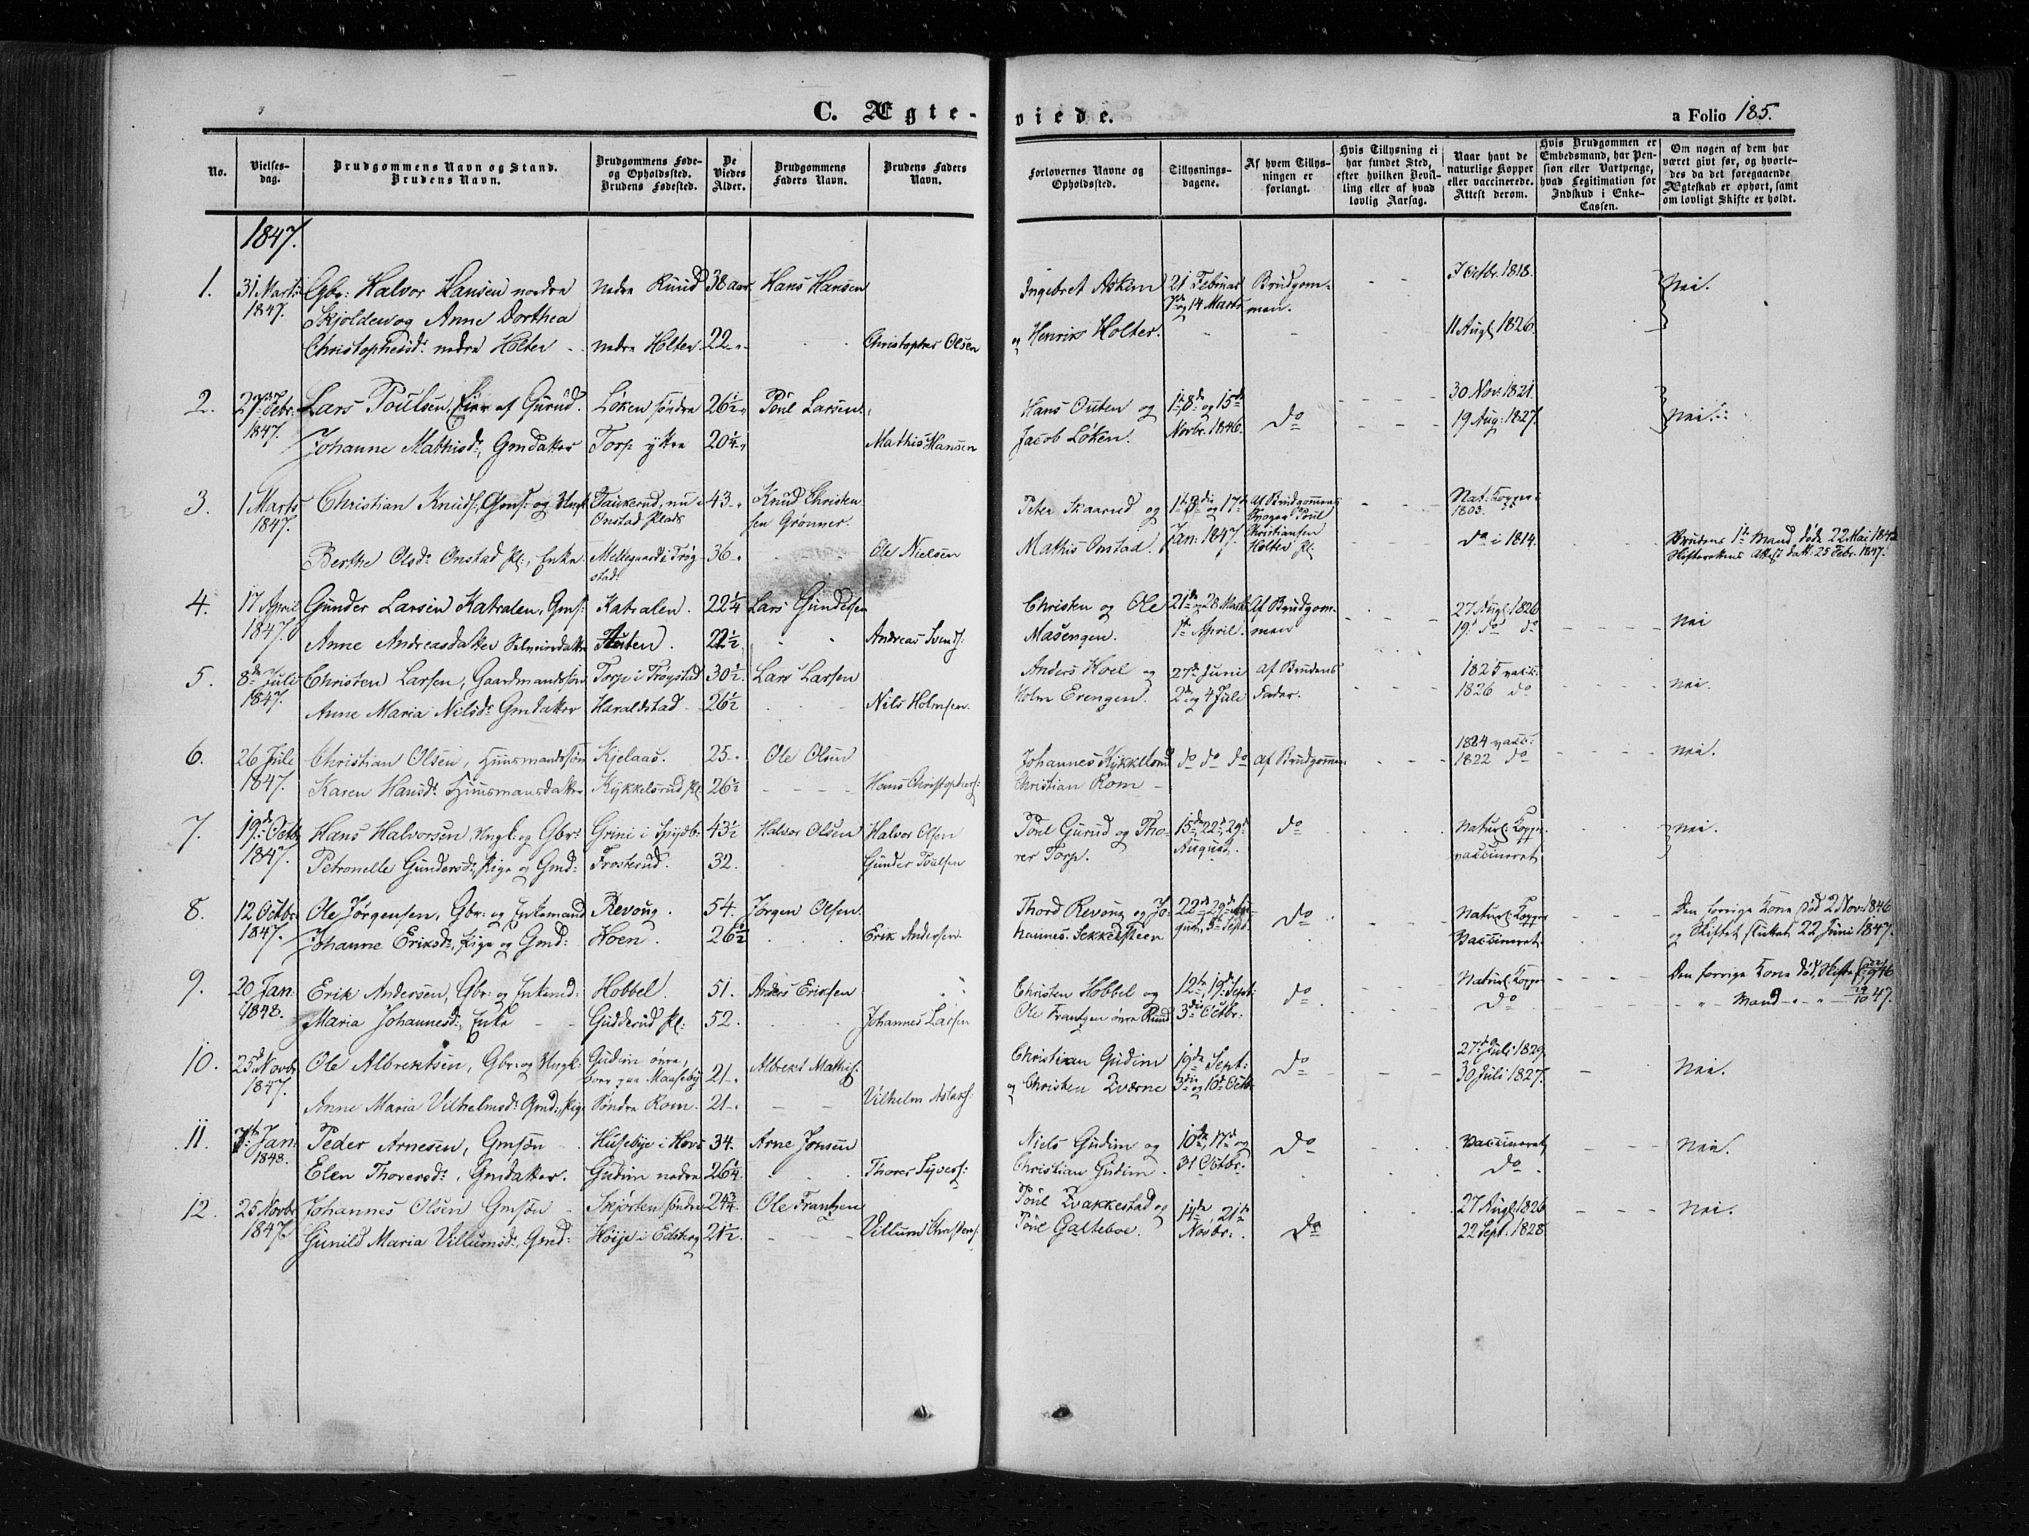 C. Ægte-
viede.
a Folio 185.
No.
Vielses-
dag.
Brudgommens Navn og Stand.
Brudens Navn.
Brudgommens Føde-
og Opholdssted.
Brudens Fødested.
De
Viedes
Alder.
Brudgommens
Faders Navn.
Brudens Faders
Navn.
Forlovernes Navne og
Opholdssted.
Tillysnings-
dagene.
Af hvem Tillys-
ningen er
forlangt.
Hvis Tillysning ei
har fundet Sted,
efter hvilken Bevil-
ling eller af hvad
lovlig Aarsag.
Naar havt de
naturlige Kopper
eller vaccinerede.
Attest derom.
Hvis Brudgommen er
Embedsmand, har Pen-
sion eller Vartpenge,
hvad Legitimation for
Indskud i Enke-
Cassen.
Om nogen af dem har
været givt før, og hvorle-
des da det foregaaende
Ægteskab er ophørt, samt
om lovligt Skifte er holdt.
1847.
1. 31 Marts Gbr: Halvor Hansen nordre nedre Ruud 38 aar Hans Hansen Ingebret Askim 21 Februar Brudgom- 7 Octbr. 1818. Nei.
1847. Skjolden og Anne Dorthea 7de og 14 Marts men.
Christophersd: nedre Holter nedre Holter 22 Christopher Olsen og Henrik Holter. 11 Augt 1826
2. 27de Febr. Lars Poulsen, Eier af Gurud. Løken søndre 26½ Poul Larsen Hans Outen og 1te, 8de og 15de do 30 Nov: 1821. Nei.
1847. Johanne Mathisd:, Gmdatter Torp ytre 20¼ Mathis Hansen Jacob Løken. Novbr. 1846. 19 Aug: 1827.
3. 1 Marts Christian Knuds:, Gms: og Ungk Taukerud, nu i 43 Knud Christen Peter Skaarud og 1te og 17de af Brudgommens Nat: Kopper i
1847. Onstad Plads sen Grønner. Poul 1803.
Berthe Olsd: Onstad Pl:, Enke Mellegaard i Trøg 36 Ole Nielsen Mathis Onstad. Jan: 1847. Christiansen Holter Pl: do i 1814. Brudens 1te Mand døde 22 Mai 184
stad: Attest dat: 25 Febr. 1847.
4. 17 April Gunder Larsen Katralen, Gms: Katralen. 22¼ Lars Gundersen Christen og Ole 21de 28 Marts Af Brudgom- 27 Augt 1826 Nei
1847. Anne Andreasdatter Outen. 22½ Andreas Svends: Masengen. 1te April. men 19 do do
5. 8de Juli Christen Larsen, Gaardmandssøn Torp i Trøgstad 30½ Lars Larsen Anders Hoel og 27de Juni af Brudens 1825 vakc: Nei.
1847. Anne Maria Nilsd: Gmdatter Haraldstad 26½ Nils Holmsen. Holm Erengen. 2de og 4 Juli Fader. 1826 do
6. 26 Juli Christian Olsen, Huusmandssøn Kjelaas. 25 Ole Olsen Johannes Kykkelsrud do do do af Brudgommen 1824 vakc: Nei.
1847. Karen Hansd: Huusmandsdatter Kykkelsrud Pl 26½ Hans Christophers: Christian Rom 1822 do
7. 19de Octb. Hans Halvorsen, Ungk. og Gbr: Grini i Spydb: 43½ Halvor Olsen Halvor Olsen Poul Gurud og Tho- 15de 22de 29de do Naturl. Kopper Nei.
1847. Petronelle Gundersd:, Pige og Gmd: Frosterud. 32. Gunder Poulsen rer Torp. August. vaccineret
8. 12 Octbr. Ole Jørgensen, Gbr: og Enkemand Revoug. 54. Jørgen Olsen. Thord Revoug og Jo- 22de, 29de Au- do Naturl. Kopper Den forrige Kone død 2 Nov. 1846
1847. Johanne Eriksd:, Pige og Gmd: Hoen. 26½ Erik Andersen. hannes Sekkelsteen gust, 5te Sept. Vaccineret. og Skiftet sluttet 22 Juni 1847.
9. 20 Jan Erik Andersen, Gbr: og Enkemd: Hobbel. 51. Anders Ericksen Christen Hobbel og 12te, 19de Sept. do Naturl. Kopper Den forrige Kone død, Skifte 46
1848. Maria Johannesd:, Enke Gudderud Pl: 52. Johannes Larsen Ole Frantzen øvre Ruud 3die Octbr: do Mand 47.
10. 25de Novbr Ole Albrektsen, Gbr: og Ungk: Gudim øvre, 21 Albrekt Mathis: Christian Gudim 19de Sept: do 27de Juli 1829. Nei.
1847. Anne Maria Vilhelmsd: Gmd:, Pige Søndre Rom. 21 Vilhelm Aslaks: og Christen Tværne 3die og 10de Octb: 30 Juli 1827.
11. 7de Jan: Peder Arnesen, Gmsøn Husebye i Hovs 34. Arne Jonsen Niels Gudim og 10de, 17de og do Vaccineret Nei.
1848. Elen Thoversd:, Gmdatter. Gudim nedre 26¼ Thorer Syvers: Christian Gudim. 31 Octbr. do
12. 25 Novbr Johannes Olsen Gmsøn Skjørten søndre 24¾ Ole Frantzen Poul Tvakkestad og 14de, 21de do 27 Augt 1826 Nei.
1847. Gunild Maria Villumsd:, Gmd: Høije i Edsberg 21½ Villum Christens: Poul Galteboe. Novbr. 22 Sept. 1828.